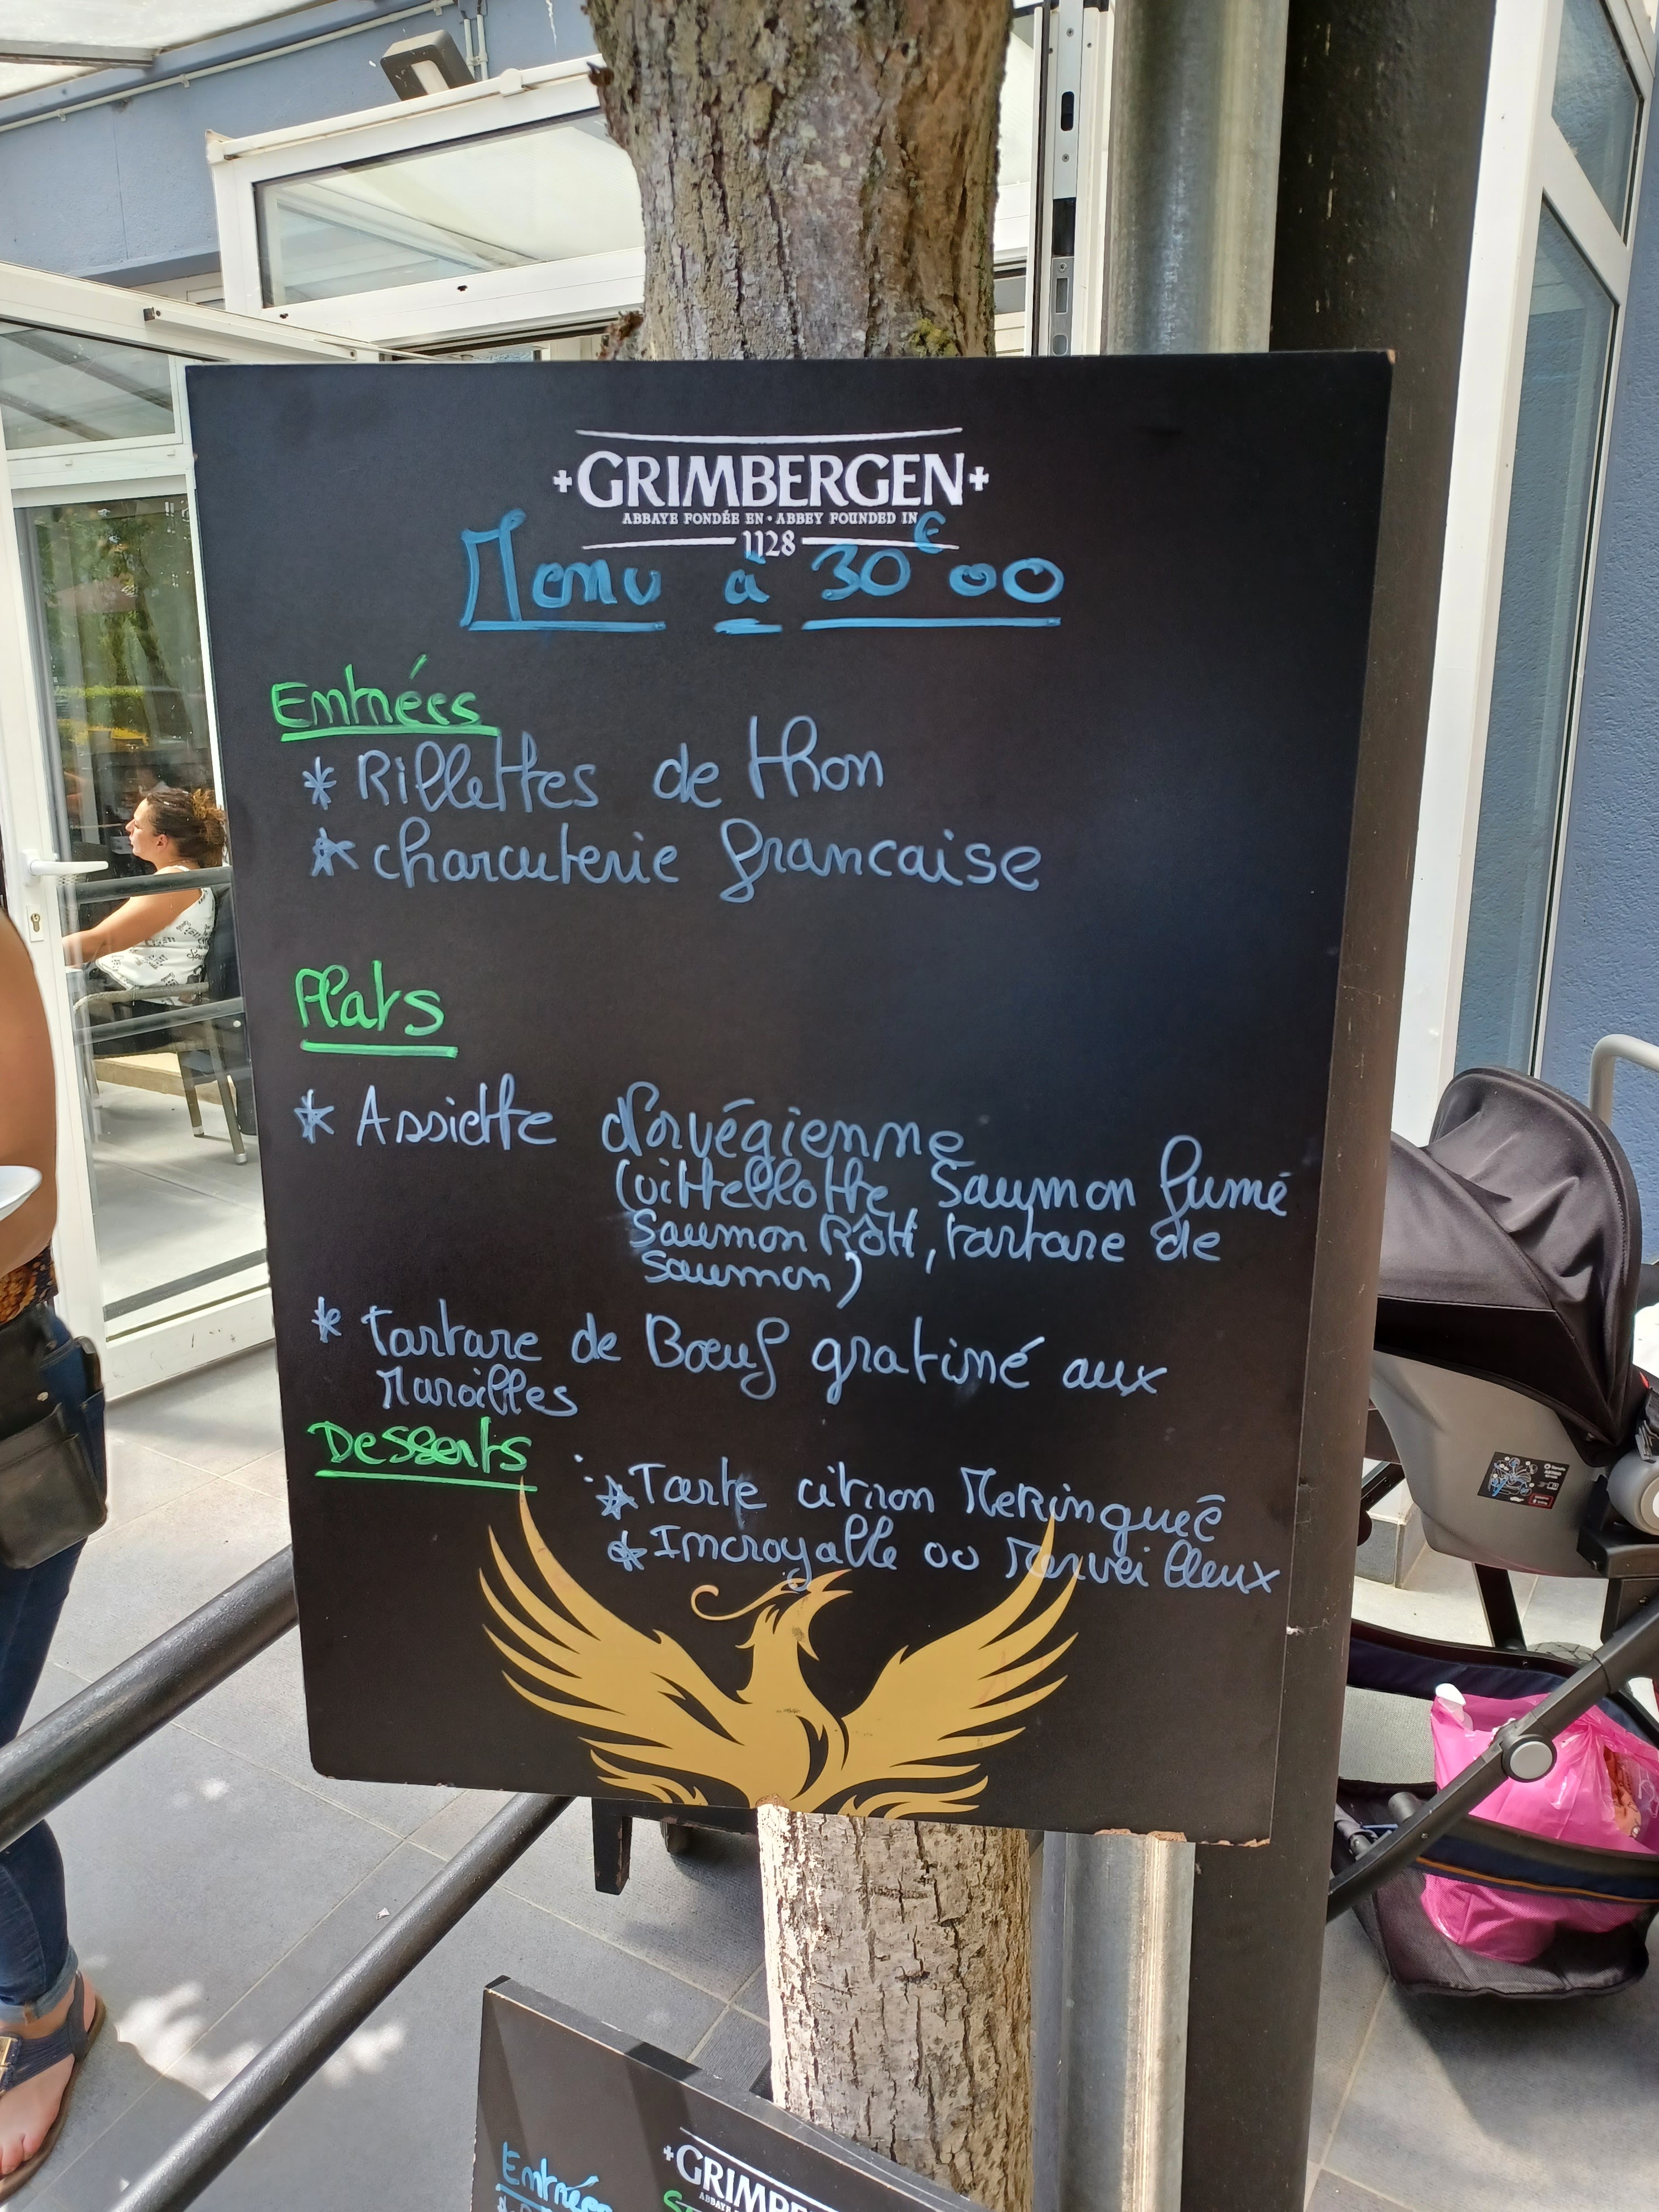 GRIMBERGEN
ABBAYE FONDÉE EN • ABBEY FOUNDED IN
1128
Menu à 30€00
Entrées
* Rillettes de thon
* charcuterie francaise
Plats
* Assiette Norvégienne
(vittellotte, Saumon fumé
Saumon Rôti, tartare de
Saumon)
* tartare de Bœuf gratiné aux
Maroilles
Desserts :
* Tarte citron Meringueé
* Incroyable ou Merveilleux
Entrées
GRIMBE